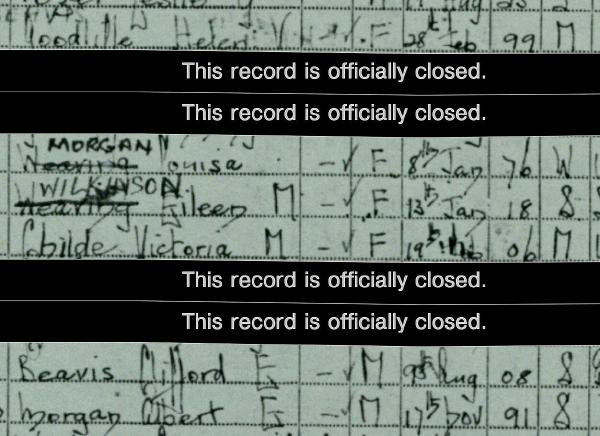 Helen V - ✓ F 28th Feb 99 M
This record is officially closed.
This record is officially closed.
MORGAN
Neaving Louisa - ✓ F 8th Jan 76 W
WILKINSON
Neaving Eileen M - ✓ F 13th Jan 18 S
Childe Victoria M - ✓ F 19th 06 M
This record is officially closed.
This record is officially closed.
Beavis Clifford E - ✓ M Aug 08 S
Morgan Albert E - ✓ M 17th Nov 91 S